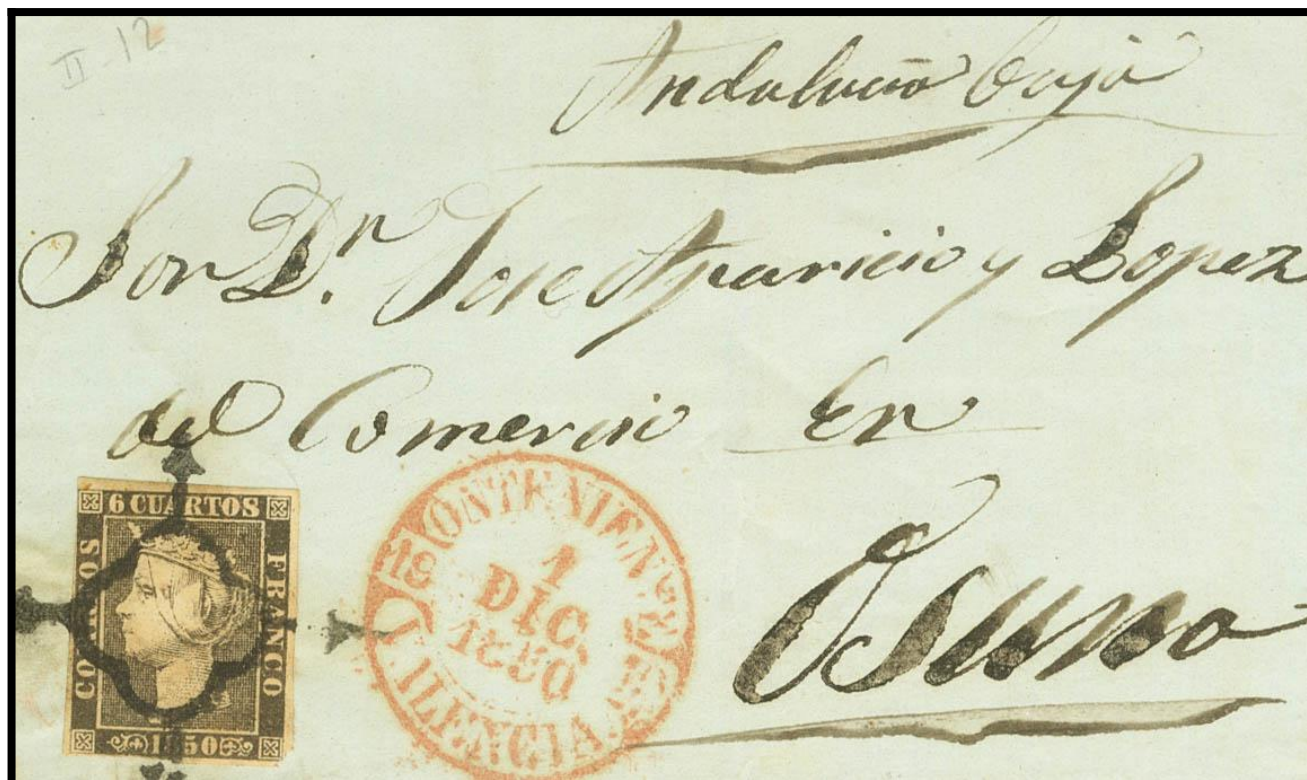 II-12
Andalucia Baja
Sor Dn. Jose Aparicio y Lopez
del Comercio En
Osuna
6 CUARTOS
CORREOS
FRANCO
1850
ONTENIENTE
18
1
DIC.
1850